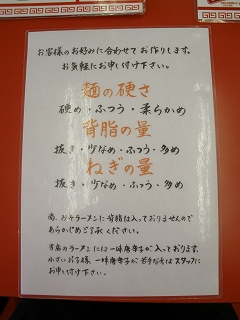 お客様のお好みに合わせてお作りします。
お気軽にお申し付け下さい。
麺の硬さ
硬め・ふつう・柔らかめ
背脂の量
抜き・少なめ・ふつう・多め
ねぎの量
抜き・少なめ・ふつう・多め
尚、みそラーメンに背脂は入っておりませんので
あらかじめご了承ください。
当店のラーメンには一味唐辛子が入っております。
小さいお子様、一味唐辛子が苦手な方はスタッフに
お申し付け下さい。